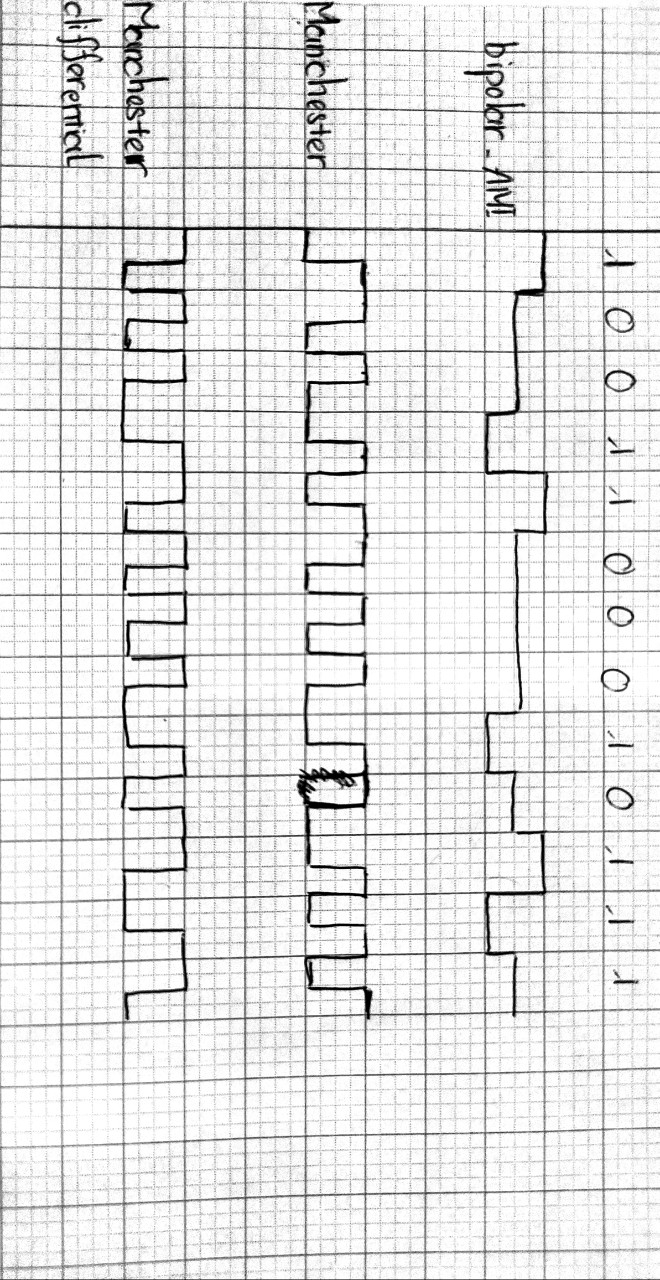 1 0 0 1 1 0 0 0 1 0 1 1 1
bipolar-AMI
Manchester
Manchester
differential